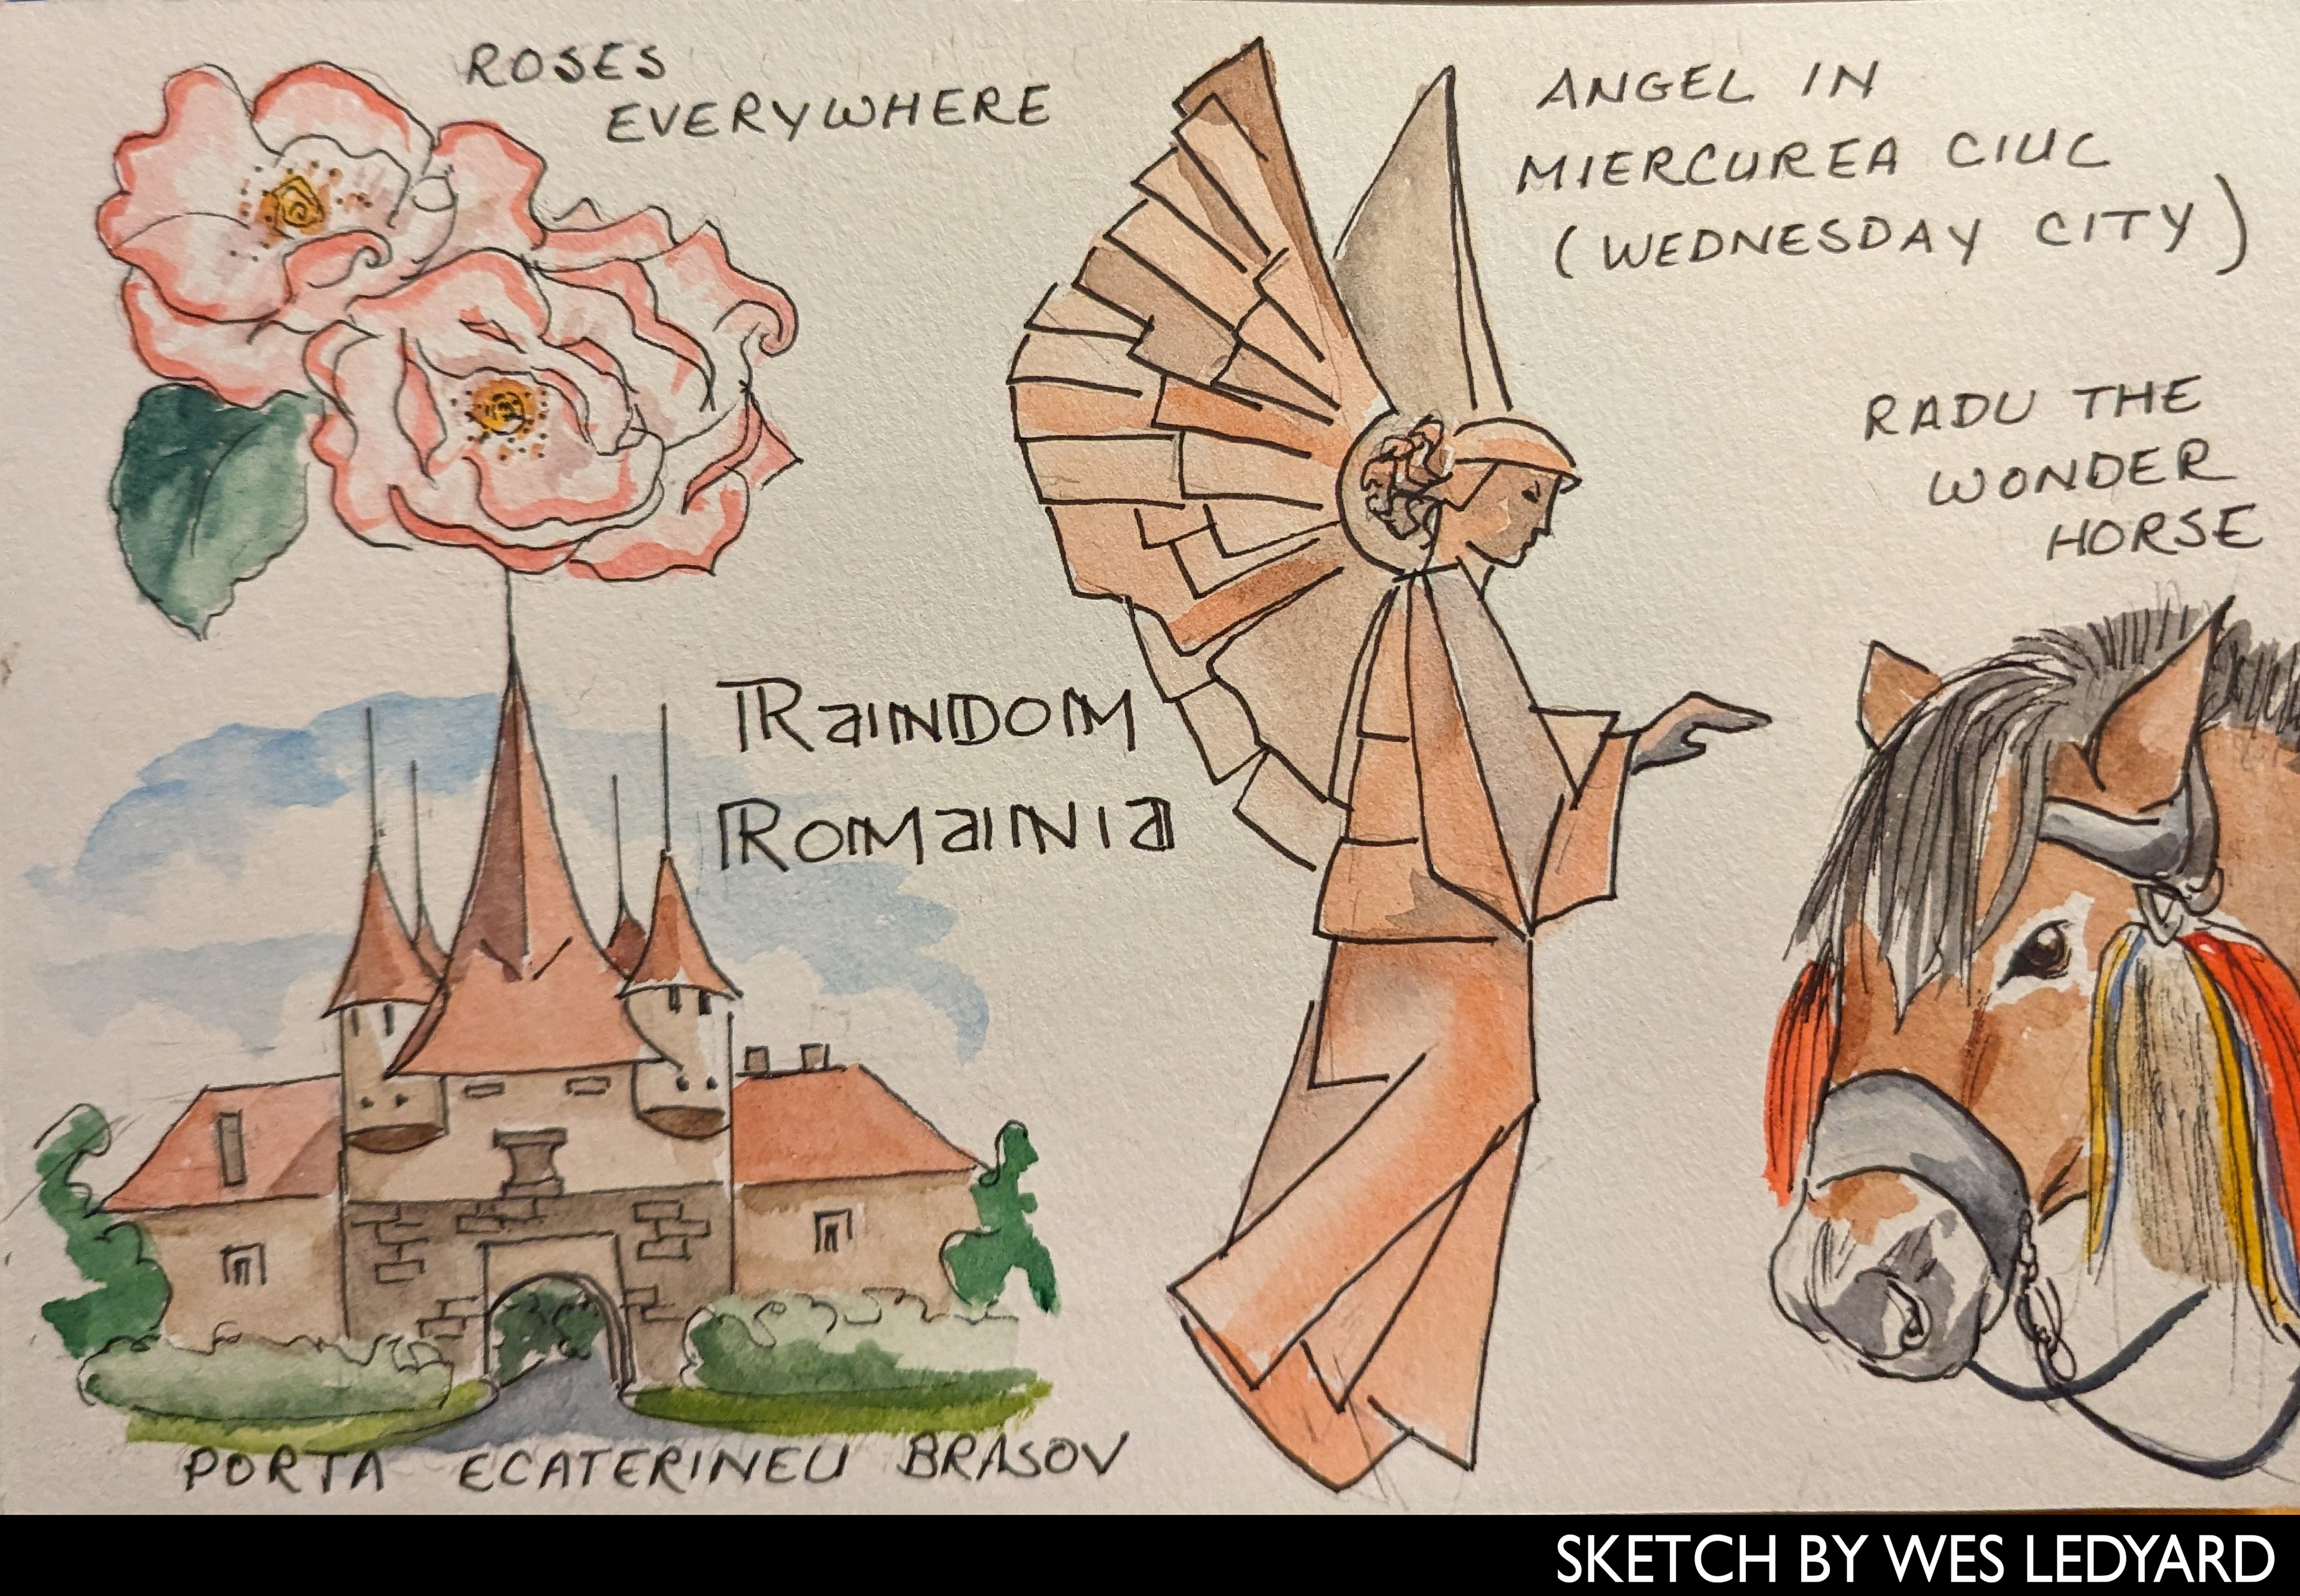 ROSES
EVERYWHERE
ANGEL IN
MIERCUREA CIUC
(WEDNESDAY CITY)
RADU THE
WONDER
HORSE
RaNDOM
ROMaNia
PORTA ECATERINEU BRASOV
SKETCH BY WES LEDYARD